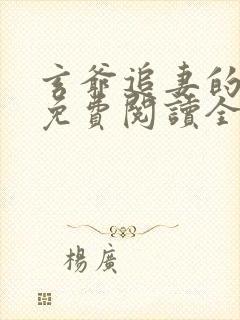 玄爺追妻的
免費閱讀全
楊廣